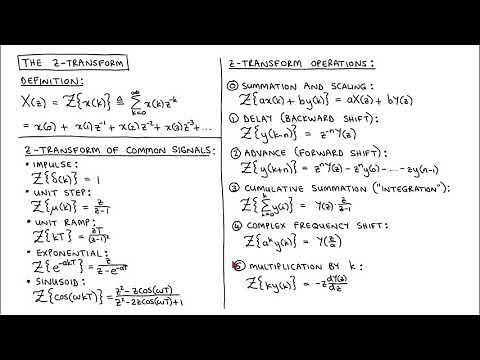 THE Z-TRANSFORM
DEFINITION:
X(z) = Z{x(k)} ≜ ∑_{k=0}^{∞} x(k)z^{-k}
= x(0) + x(1)z^{-1} + x(2)z^{-2} + x(3)z^{-3} + ...
Z-TRANSFORM OF COMMON SIGNALS:
• IMPULSE:
Z{δ(k)} = 1
• UNIT STEP:
Z{μ(k)} = z/(z-1)
• UNIT RAMP:
Z{kT} = zT/(z-1)²
• EXPONENTIAL:
Z{e^{-akT}} = z/(z-e^{-aT})
• SINUSOID:
Z{cos(ωkT)} = (z²-zcos(ωT))/(z²-2zcos(ωT)+1)
Z-TRANSFORM OPERATIONS:
⓪ SUMMATION AND SCALING:
Z{ax(k) + by(k)} = aX(z) + bY(z)
① DELAY (BACKWARD SHIFT):
Z{y(k-n)} = z^{-n}Y(z)
② ADVANCE (FORWARD SHIFT):
Z{y(k+n)} = z^{n}Y(z) - z^{n}y(0) - ... - zy(n-1)
③ CUMULATIVE SUMMATION ("INTEGRATION"):
Z{∑_{i=0}^{k} y(i)} = Y(z) z/(z-1)
④ COMPLEX FREQUENCY SHIFT:
Z{a^{k}y(k)} = Y(z/a)
⑤ MULTIPLICATION BY k:
Z{ky(k)} = -z dY(z)/dz